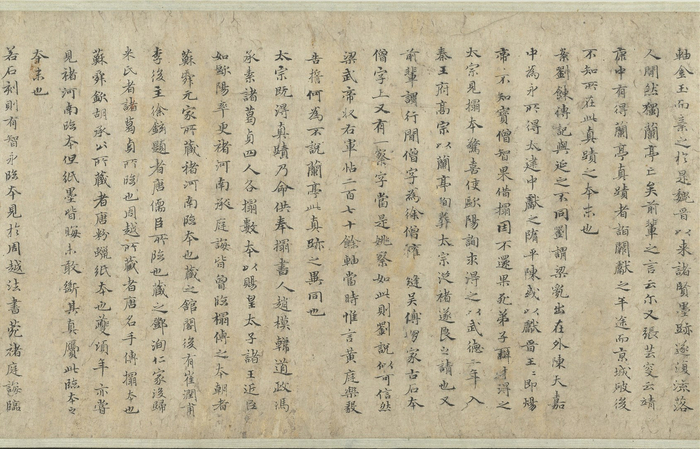 軸金玉而棄之於是魏晉以來諸賢墨跡遂復流落
人間然獨蘭亭亡矣前輩之言云尔又張芸叟云靖
康中有得蘭亭真蹟者詣闕獻之半途而京城破後
不知所在此真蹟之本末也
案劉餗傳記與延之不同劉謂梁亂出在外陳天嘉
中為永所得太建中獻之隋平陳或以獻晉王王即煬
帝帝不知寶僧智果借搨因不還果死弟子辯才得之
太宗見搨本驚喜使歐陽詢求得之以武德二年入
秦王府高宗以蘭亭殉葬太宗從褚遂良之請也又
前輩謂行間僧字為徐僧權縫吴傅朋家古石本
僧字上又有一察字當是姚察如此則劉說似可信然
梁武帝收右軍帖二百七十餘軸當時惟言黃庭樂毅
告誓何為不說蘭亭此真跡之異同也
太宗既得真蹟乃命供奉搨書人趙模韓道政馮
承素諸葛貞四人各搨數本以賜皇太子諸王近臣
如歐陽率更褚河南永庭誨皆曾臨搨傳之本朝者
蘇舜元家所藏褚河南臨本也藏之館閣後有崔潤甫
李後主徐鉉題者唐儒臣所臨也藏之鄧洵仁家後歸
米氏者諸葛貞所臨也周越所藏者唐名手傳搨本也
蘇舜欽胡承公所藏者唐粉蠟紙本也頃年亦嘗
見褚河南臨本但紙墨皆晦未敢斷其真贗此臨本之
本末也
若石刻則有智永臨本見於周越法書苑褚庭誨臨